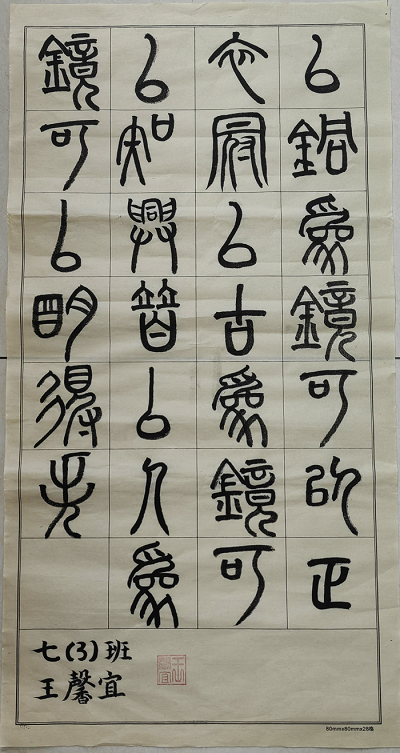 以銅為鏡可以正
衣冠以古為鏡可
以知興替以人為
鏡可以明得失
七(3)班
王馨宜
80mmx80mmx28格